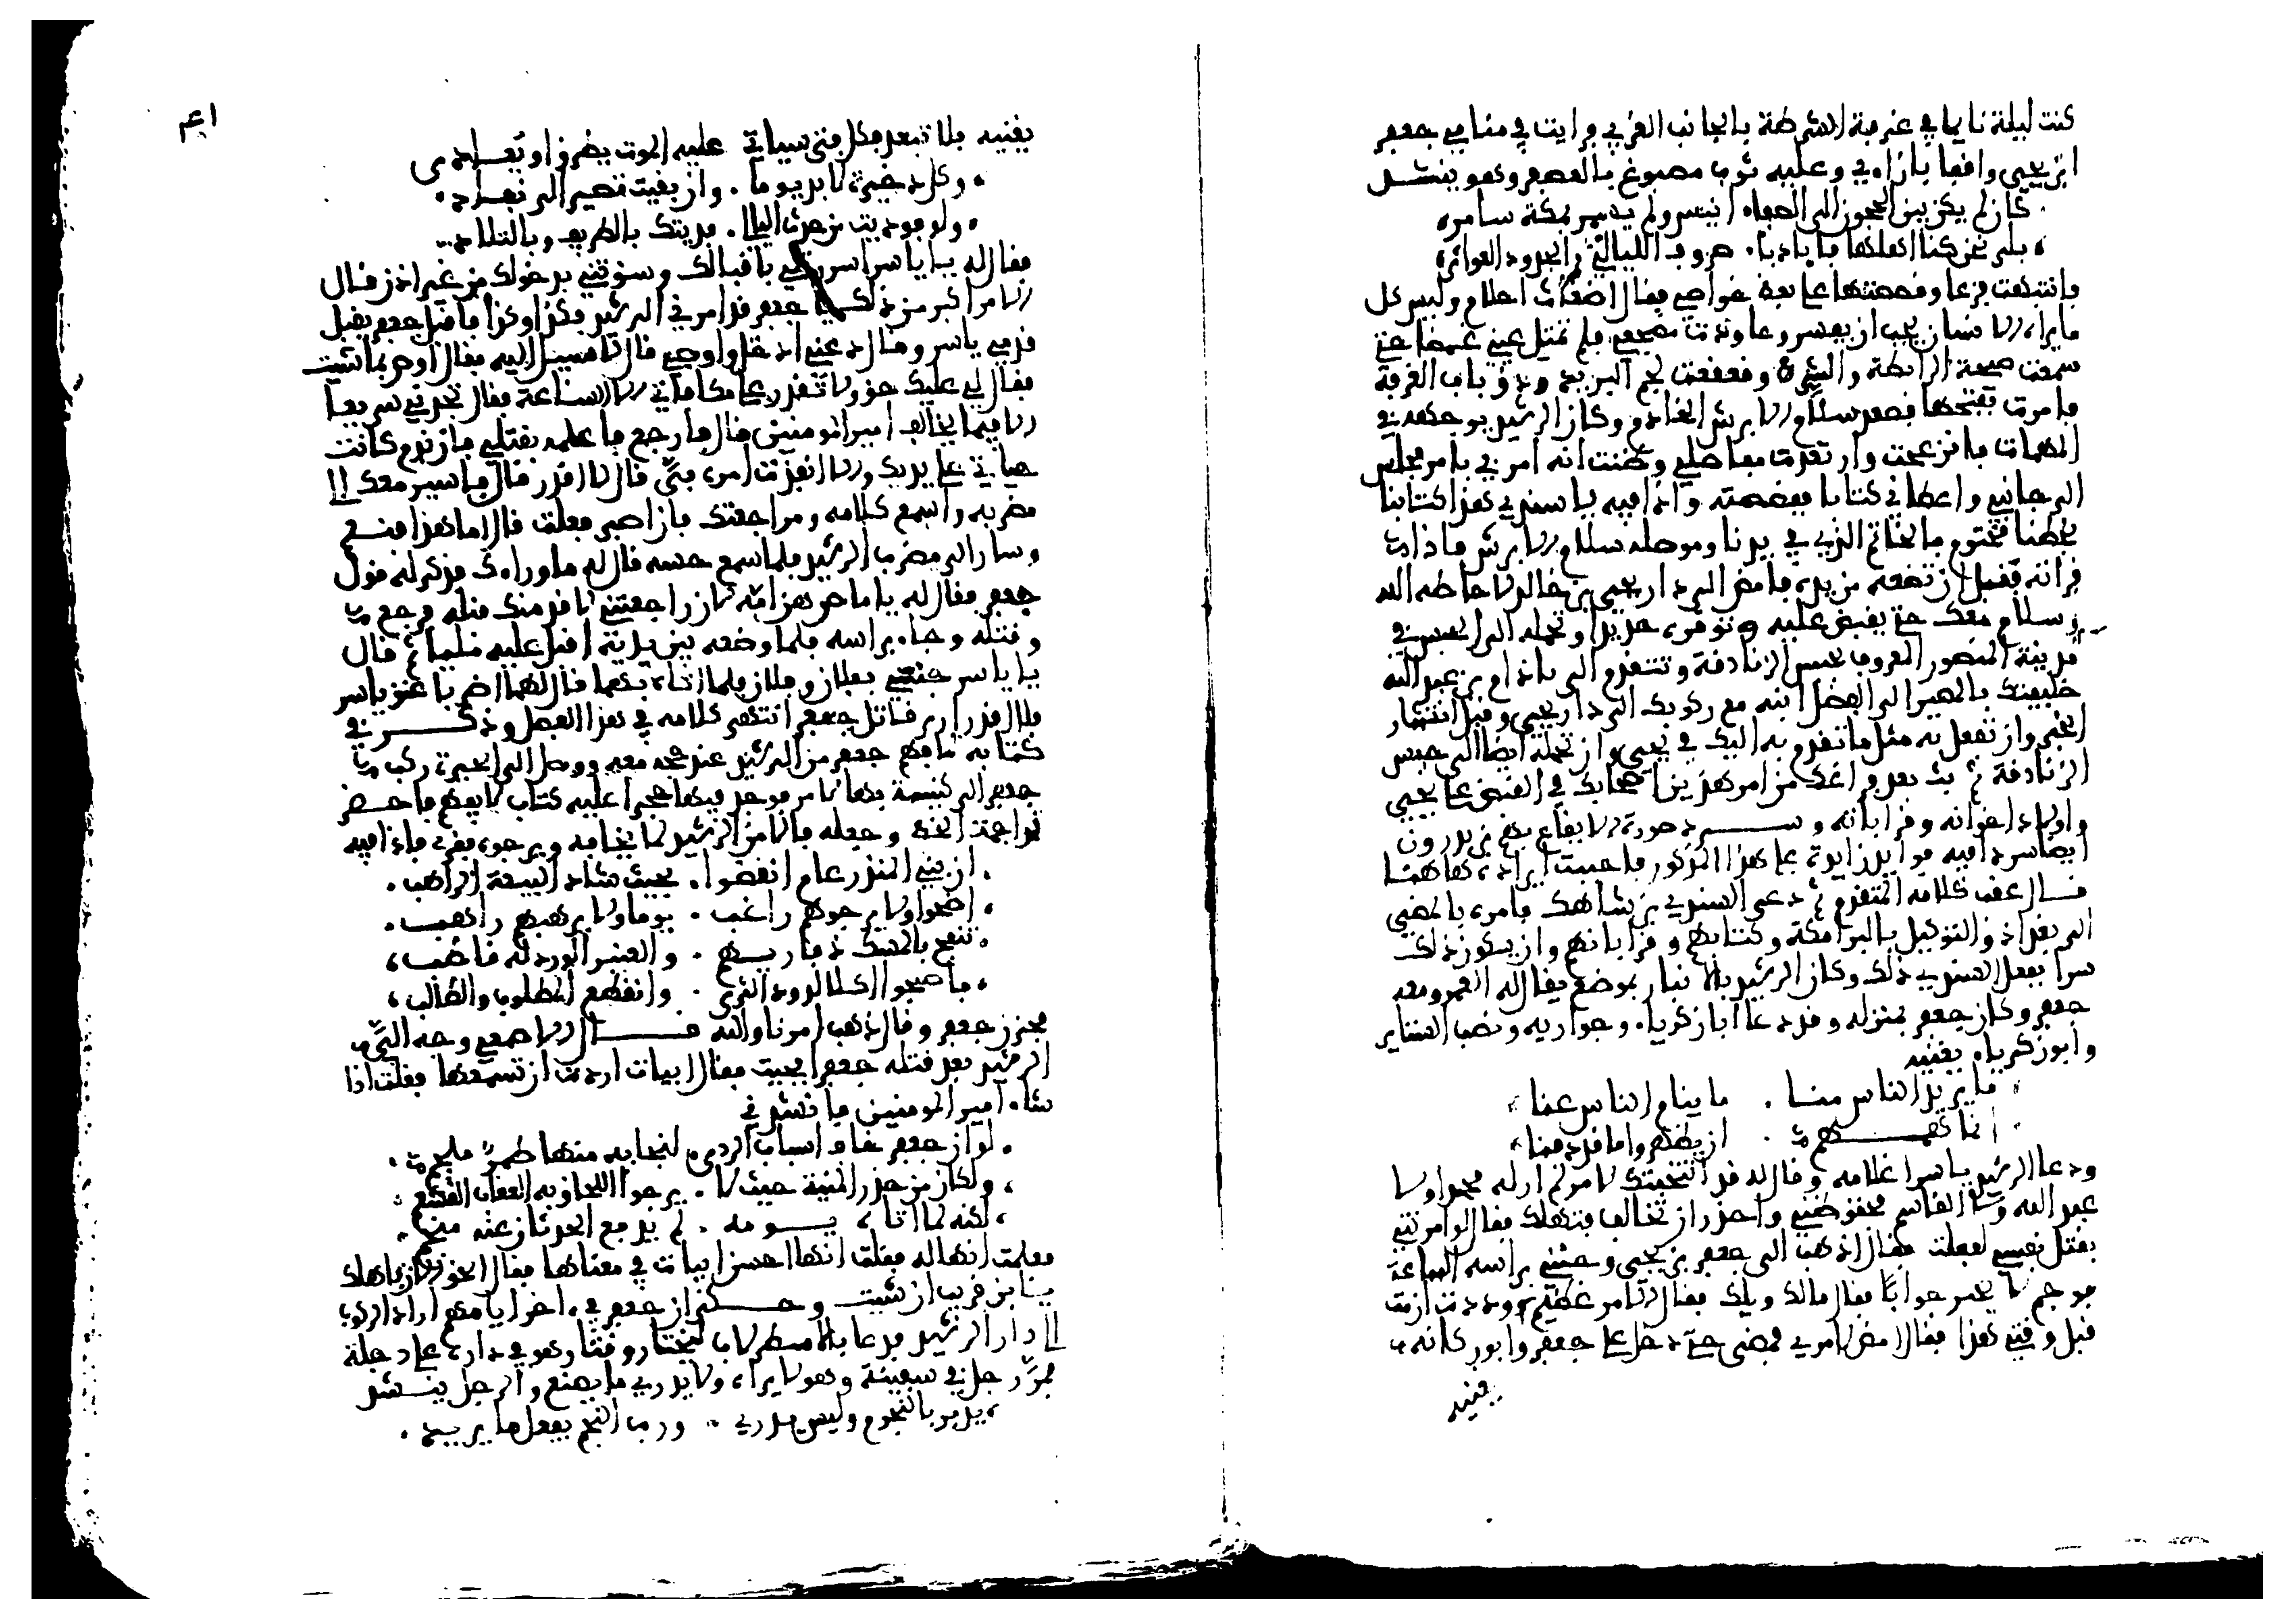 كنت ليلة نايما في غرفة الشرطة بالجانب الغربي فرايت في منامي جعفر
ابن يحيى واقفا بازاءي وعليه ثوب مصبوغ بالعصفر وهو ينشد
كان لم يكن بين الحجون الى الصفاء انيس ولم يسمر بمكة سامر
بلى نحن كنا اهلها فابادنا صروف الليالي والجدود العواثر
فانتبهت فزعا وقصصتها على بعض خواصي فقال اضغاث احلام وليس كل
ما يراه الانسان يجب ان يفسر وعاودت مضجعي فلم تمتل عيني غمضا حتى
سمعت صيحة الرابطة والشرط وقعقعة لجم البريد ودق باب الغرفة
فامرت بفتحها فصعد سلام الابرش الخادم وكان الرشيد يوجهه في
المهمات فانزعجت وارتعدت مفاصلي وظننت انه امر في بامر فجلس
الى جانبي واعطاني كتابا ففضضته واذا فيه يا سندي هذا كتابنا
بخطنا مختوم بالخاتم الذي في يدنا وموصله سلام الابرش فاذا
قراته فقبل ان تضعه من يدك فامض الى دار يحيى بن خالد لا حاطه الله
وسلام معك حتى تقبض عليه وتوقره حديدا وتحمله الى الحبس في
مدينة المنصور المعروف بحبس الزنادقة وتتقدم الى باذام بن عبد الله
خليفتك بالمصير الى الفضل ابنه مع ركوبك الى دار يحيى وقبل انتشار
الخبر وان تفعل به مثل ما تقدم به اليك في يحيى وان تحمله ايضا الى حبس
الزنادقة ثم بث بعد فراغك من امر هذين اصحابك في القبض على يحيى
واولاد اخوانه وقراباته وسرد صورة الايقاع بهم بن بدرون
ايضا سردا فيه فوايد زايدة على هذا المذكور فاحببت ايراده هاهنا
قال عقب كلامه المتقدم ثم دعى السندي بن شاهك فامره بالمضي
الى بغداد والتوكيل بالبرامكة وكتابهم وقراباتهم وان يكون ذلك
سرا ففعل السندي ذلك وكان الرشيد بالانبار بموضع يقال له العمر ومعه
جعفر وكان جعفر بمنزله وقد دعا ابا زكرياء وجواريه ونصب الستاير
وابو زكرياء يغنيه
ما يريد الناس منا ما ينام الناس عنا
انما همهم ان يظهروا ما قد دفنا
ودعا الرشيد ياسرا غلامه وقال له قد انتخبتك لامر لم ار له محمدا ولا
عبد الله ولا القاسم فحقق ظني واحذر ان تخالف فتهلك فقال لو امرتني
بقتل نفسي لفعلت فقال اذهب الى جعفر بن يحيى وجئني براسه الساعة
فوجم لا يحير جوابا فقال مالك ويلك فقال الامر عظيم وددت ان مت
قبل وقتي هذا فقال امض لامري فمضى حتى دخل على جعفر وابو زكار
يغنيه
ا٤٢
يغنيه فلا تبعد فكل فتى سياتي عليه الموت يطرق او يغادى
وكل ذخيرة لا بد يوما وان بقيت تصير الى نفاد
ولو فوديت من حدث الليالي فديتك بالطريف وبالتلاد
فقال له يا ياسر اسررتني باقبالك وسؤتني بدخولك من غير اذن قال
الامر اكبر من ذلك يا جعفر قد امرني الرشيد بكذا وكذا فاقبل جعفر يقبل
قدمي ياسر وقال دعني ادخل واوصي قال لا سبيل اليه فقال اوص بما شئت
فقال لي عليك حق ولا تقدر على مكافاتي الا الساعة فقال تجدني سريعا
الا فيما يخالف امير المومنين قال فارجع فاعلمه بقتلي فان ندم كانت
حياتي على يديك والا انفذت امره في قال لا اقدر قال فاسير معك الى
مضربه واسمع كلامه ومراجعتك فان اصر فعلت قال اما هذا فنعم
وسار الى مضرب الرشيد فلما سمع حسه قال له ما وراءك فذكر له قول
جعفر فقال له يا ماص هن امه لان راجعتني لاقدمنك قبله فرجع
وقتله وجاء براسه فلما وضعه بين يديه اقبل عليه مليا ثم قال
يا ياسر جئني بفلان وفلان فلما اتاه بهما قال لهما اضربا عنق ياسر
فلا اقدر ارى قاتل جعفر انتهى كلامه في هذا الفصل وذكر في
كتابه لما فهم جعفر من الرشيد عند حجه معه ووصل الى الحيرة ركب
جعفر الى كنيسة بها لامر فوجد فيها حجرا عليه كتاب لا يفهم فاحضر
تراجمة الخط وجعله فالا من الرشيد لما يخافه ويرجوه فقرئ فاذا فيه
ان بني المنذر عام انقضوا بحيث شاد البيعة الراهب
اضحوا ولا يرجوهم راغب يوما ولا يرهبهم راهب
تنفح بالمسك ذفاريهم والعنبر الورد له قاطب
فاصبحوا اكلا لدود الثرى وانقطع المطلوب والطالب
فحزن جعفر وقال ذهب امرنا والله قال الاصمعي وجه الي
الرشيد بعد قتله جعفرا فجيت فقال ابيات اردت ان تسمعها فقلت اذا
شاء امير المومنين فانشدني
لو ان جعفر خاف اسباب الردى لنجا به منها طمر ملجم
ولكان من حذر المنية حيث لا يرجوا اللحاق به العقاب القشعم
لكنه لما اتاه يومه لم يدفع الحدثان عنه منجم
فعلمت انها له فقلت انها احسن ابيات في معناها فقال الحق الان باهلك
يا بن قريب ان شئت وحكي ان جعفر في اخر ايامهم اراد الركوب
الى دار الرشيد فدعا بالاسطرلاب ليختار وقتا وهو في داره على دجلة
فمر رجل في سفينة وهو لا يراه ولا يدري ما يصنع والرجل ينشد
يدبر بالنجوم وليس يدري ورب النجم يفعل ما يريد